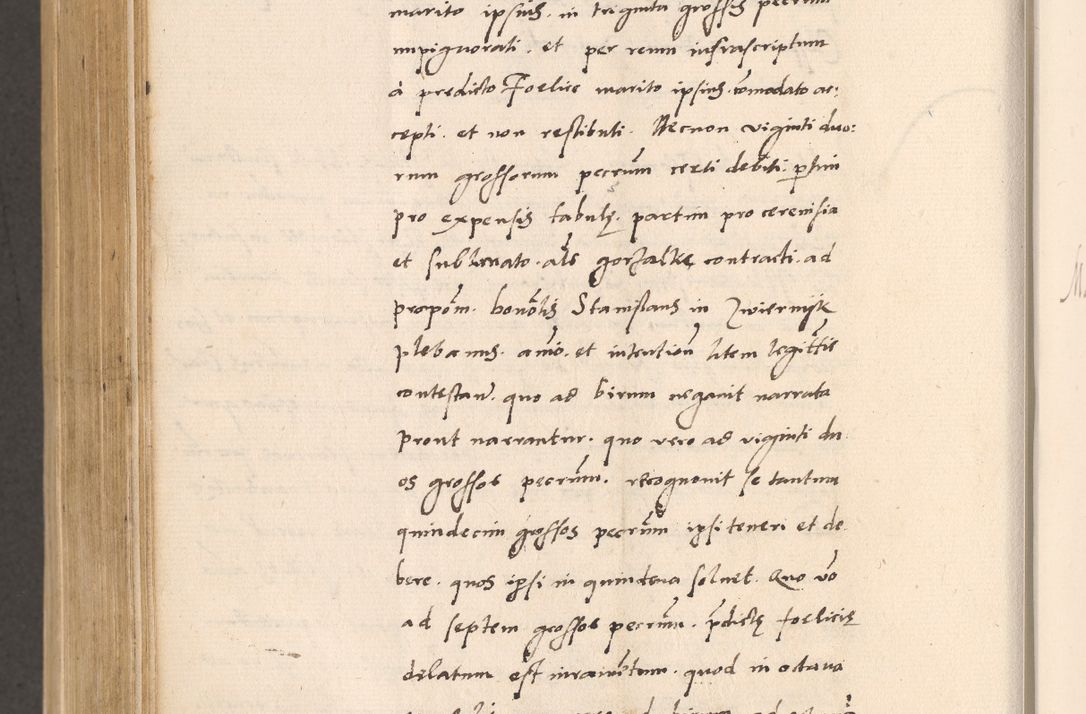 marito ipsius. in triginta grossis pecrum
impignorati. et per reum infrascriptum
à predicto Foelice marito ipsius. comodato ac:
cepti. et non restituti. Necnon viginti duo:
rum grossorum pecrum certi debiti. partim
pro expensis tabulę. partim pro cerevisia
et sublimato. als gorzalkę contracti. ad
propom. honoblis Stanislaus in Zwiernik
plebanus. amo. et intention litem legittie
contestan. quo ad birum negavit narrata
prout narrantur. quo vero ad viginti du
os grossos pecrum. recognovit se tantum
quindecim grossos pecrum ipsi teneri et de
bere. quos ipsi in quindena solvet. Quo vo
ad septem grossos pecrum. pdictę foelicis
dilatum est iuramentum. quod in octava